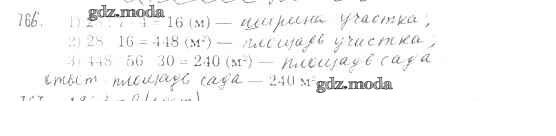 766. 1) 28 : 7 · 4 = 16 (м) — ширина участка;
gdz.moda
2) 28 · 16 = 448 (м²) — площадь участка;
3) 448 - 56 · 30 = 240 (м²) — площадь сада
ответ: площадь сада — 240 м²
gdz.moda